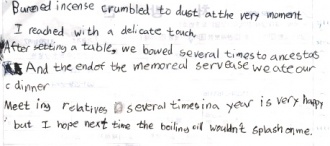 Burned incense crumbled to dust at the very moment
I reached with a delicate touch
After setting a table, we bowed several times to ancestos
And the end of the memoreal servease we ate our
c dinner
Meeting relatives several times in a year is very happy
but I hope next time the boiling oil wouldn't splash on me.